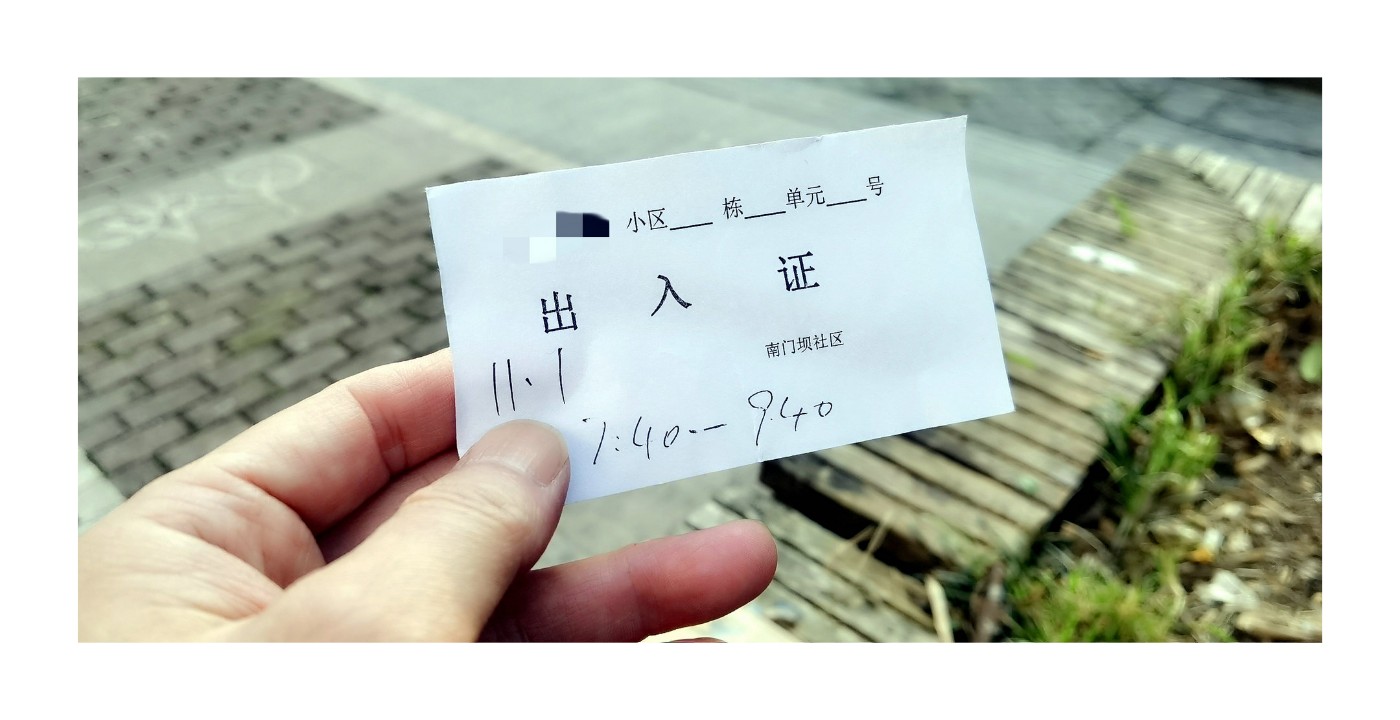 小区___ 栋___单元___号
出 入 证
南门坝社区
11.1
7:40-- 9:40